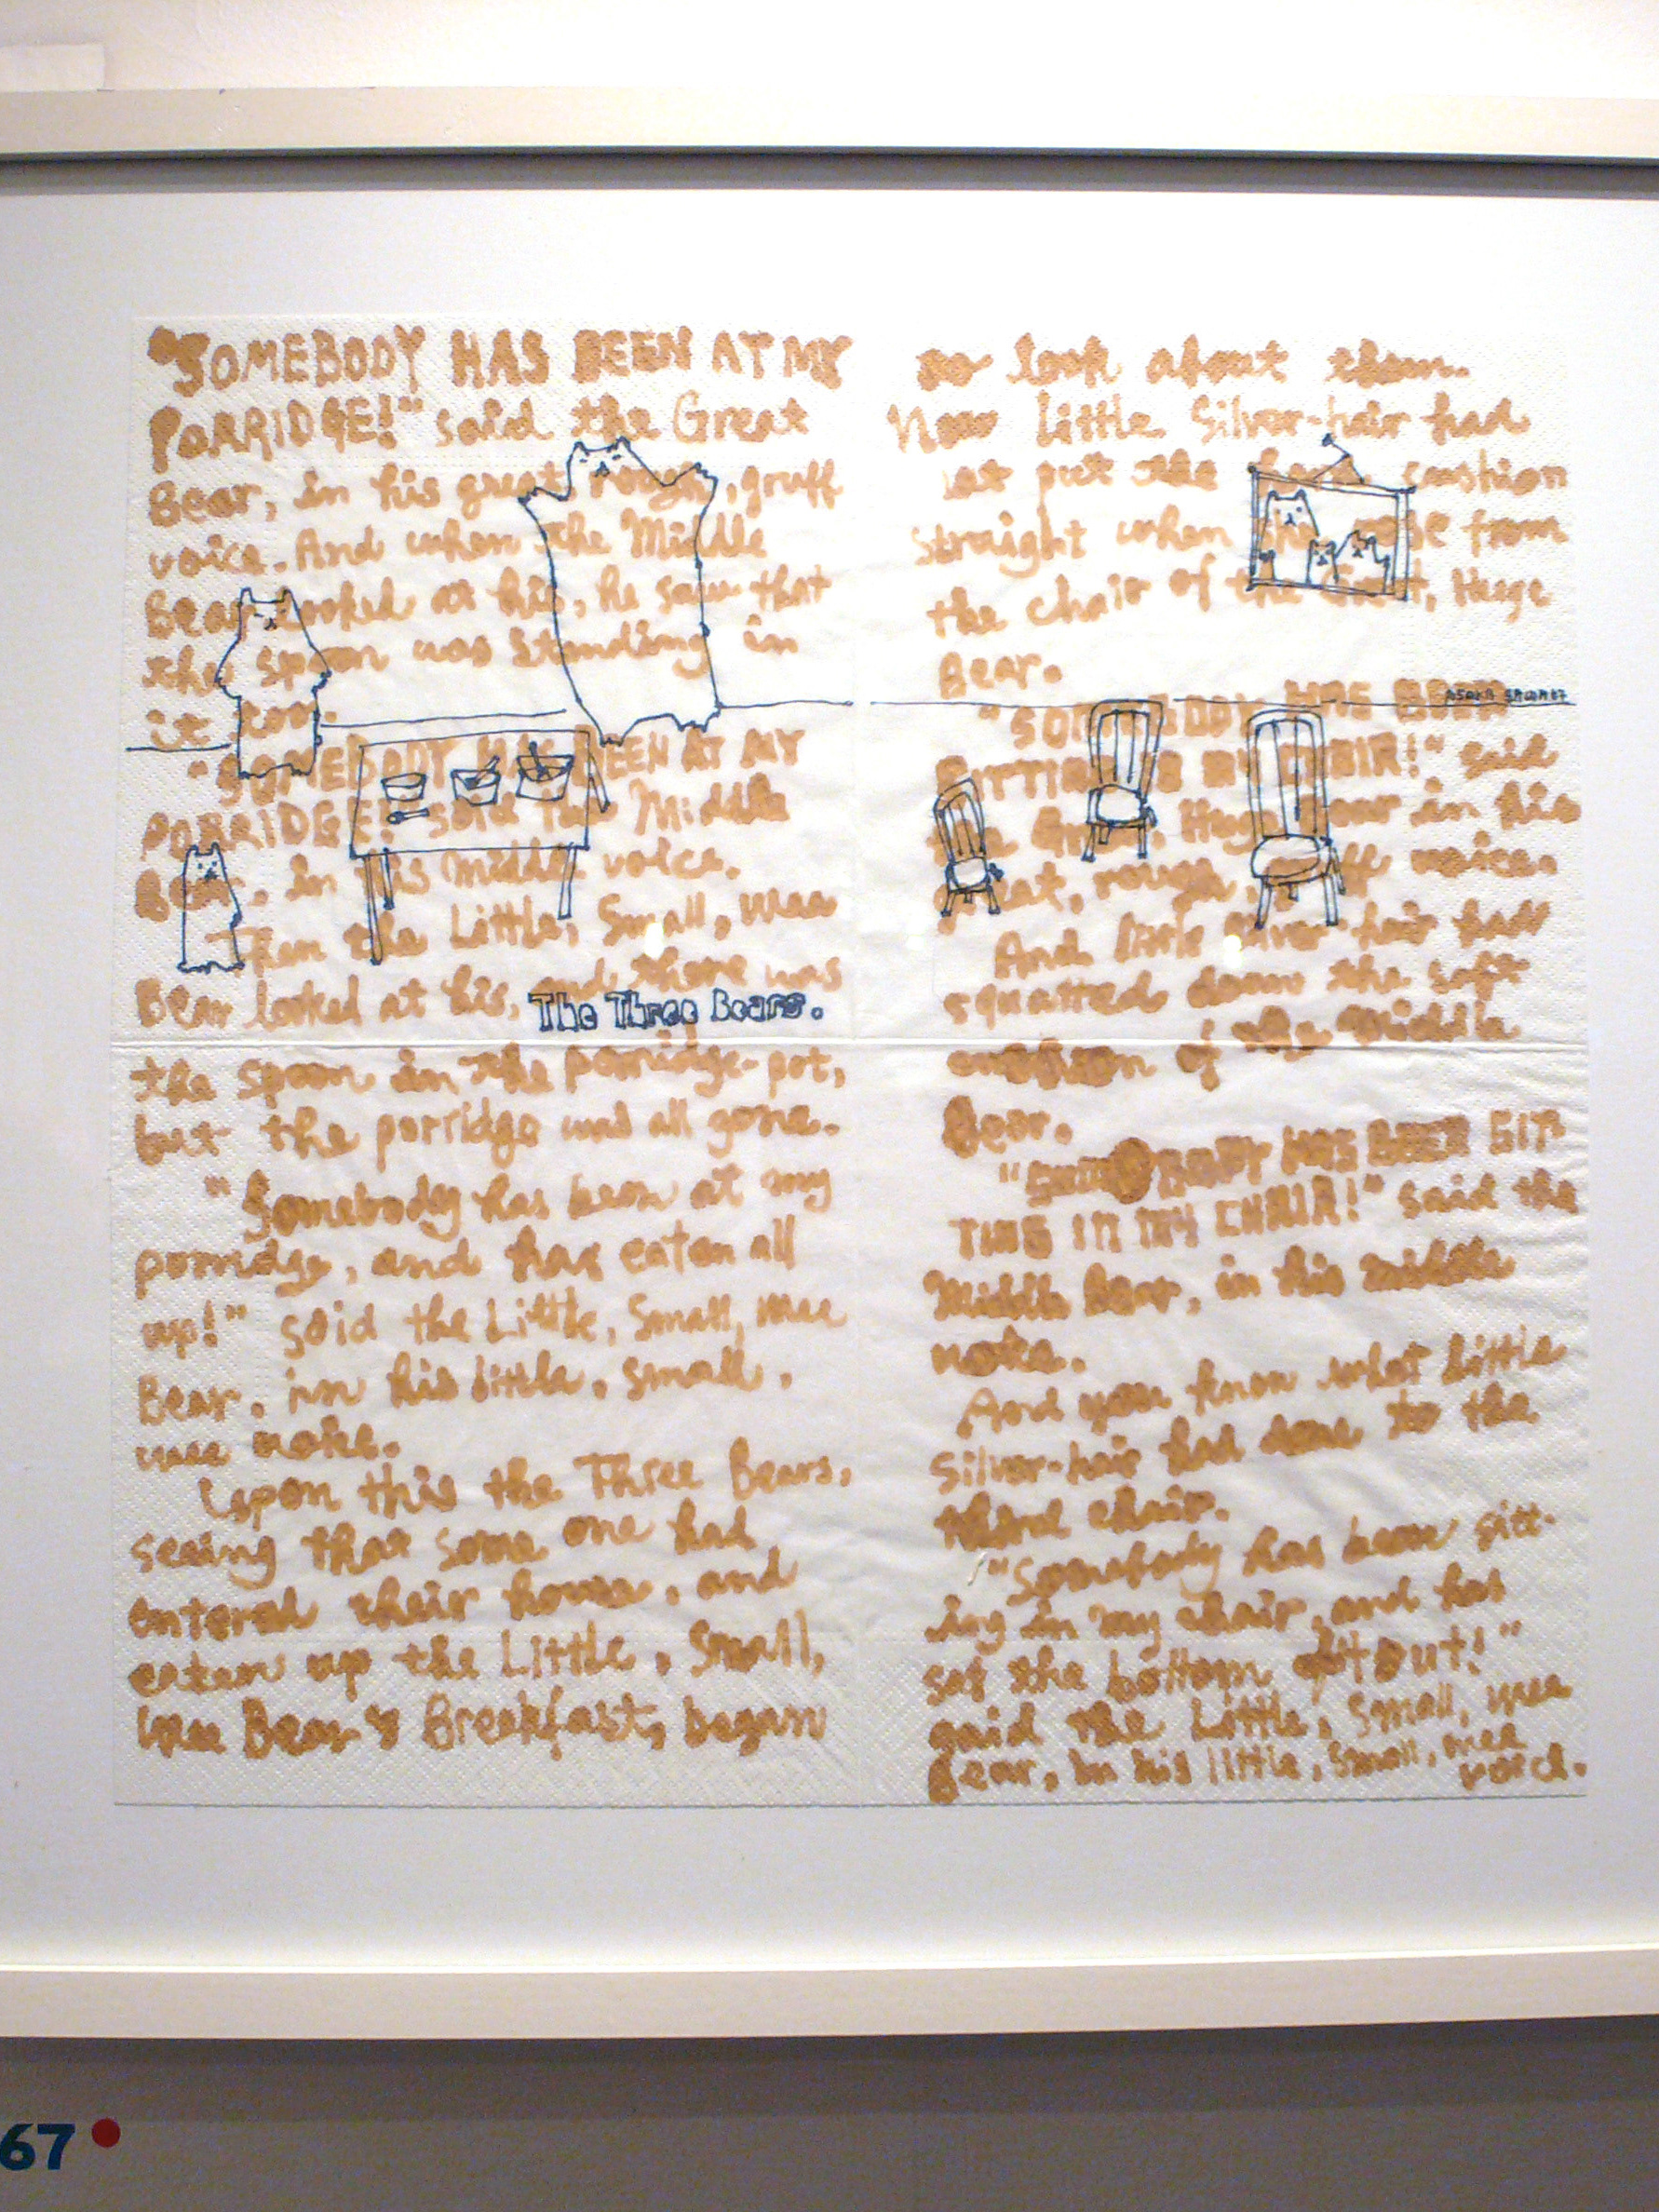 "SOMEBODY HAS BEEN AT MY
PORRIDGE!" said the Great
Bear, in his great, rough, gruff
voice. And when the Middle
Bear looked at his, he saw that
the spoon was standing in
it too.
"SOMEBODY HAS BEEN AT MY
PORRIDGE!" said the Middle
Bear, in his middle voice.
Then the Little, Small, wee
Bear looked at his, and there was
The Three Bears.
the spoon in the porridge-pot,
but the porridge was all gone.
"Somebody has been at my
porridge, and has eaten all
up!" said the Little, Small, wee
Bear, in his little, small,
wee voice.
Upon this the Three Bears,
seeing that some one had
entered their house, and
eaten up the Little, Small,
Wee Bear's Breakfast, began
to look about them.
Now little Silver-hair had
not put the cushion
straight when she rose from
the chair of the Great, Huge
Bear.
"SOMEBODY HAS BEEN
SITTING IN MY CHAIR!" said
the Great, Huge Bear in his
great, rough, gruff voice.
And little Silver-hair had
squatted down the soft
cushion of the Middle
Bear.
"SOMEBODY HAS BEEN SIT-
TING IN MY CHAIR!" said the
Middle Bear, in his middle
voice.
And you know what little
Silver-hair had done to the
third chair.
"Somebody has been sitt-
ing in my chair, and has
sat the bottom out!"
said the Little, Small, wee
Bear, in his little, small, wee
voice.
67